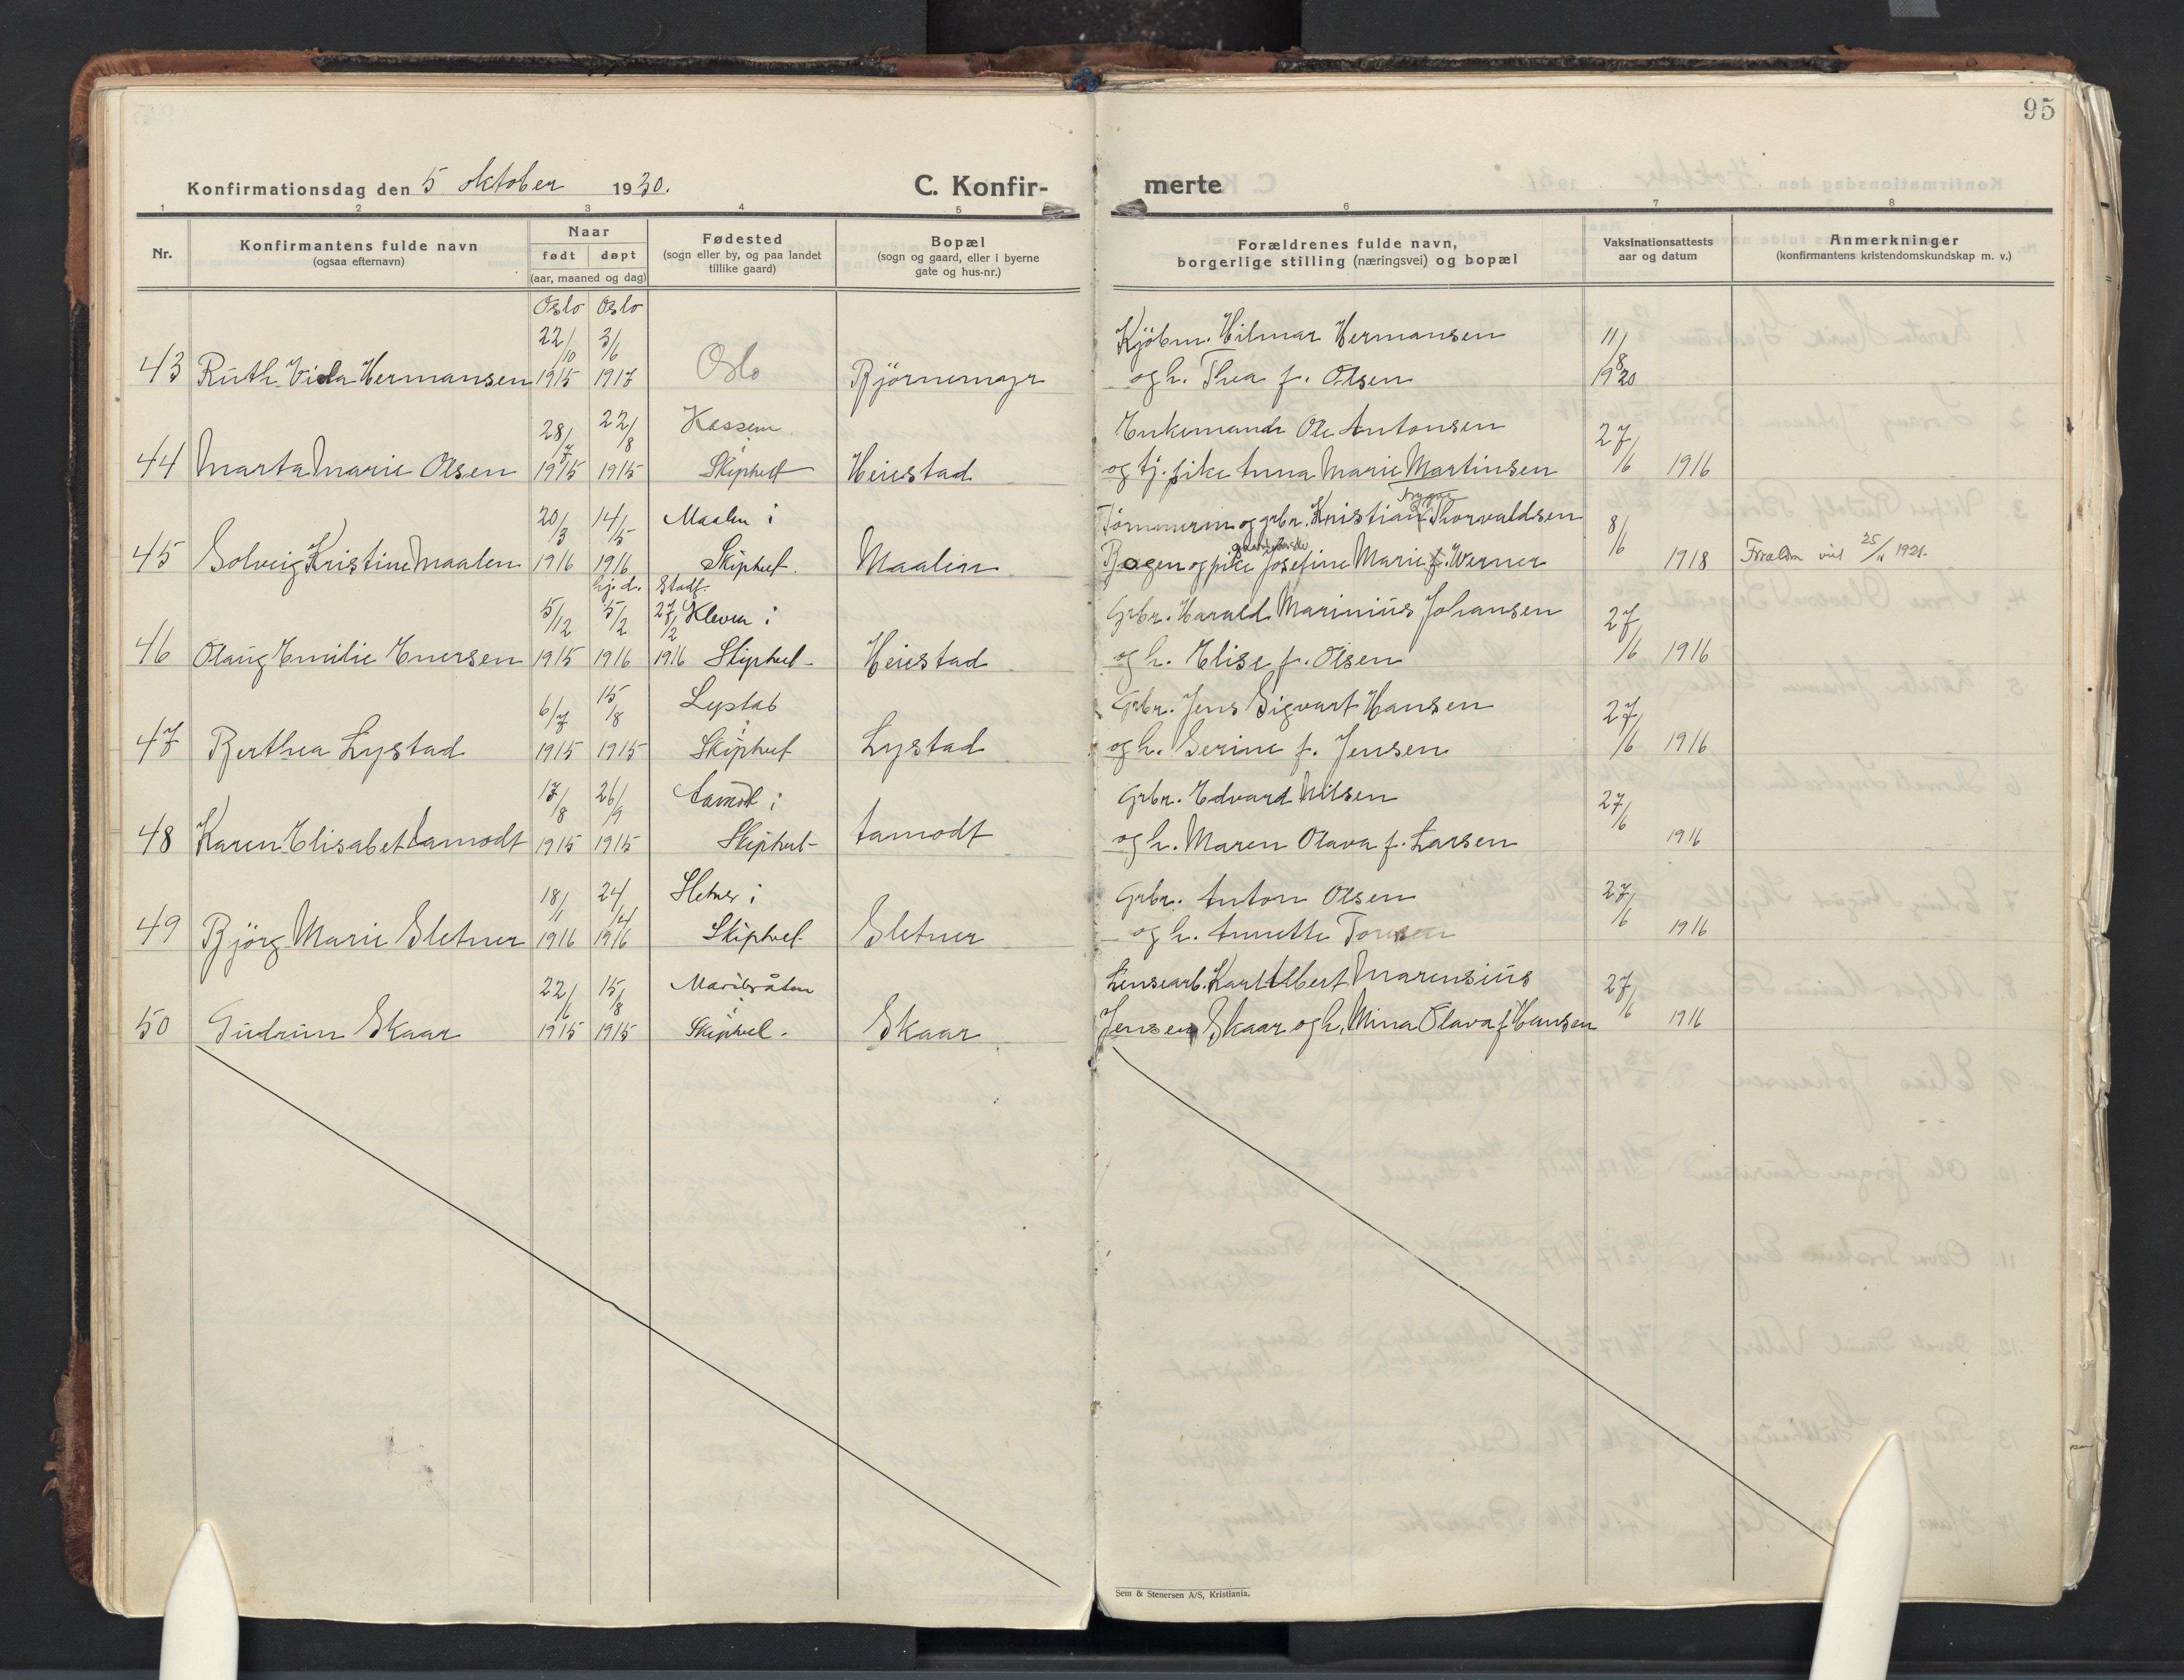 95
Konfirmationsdag den 5 oktober 1930.
C. Konfir-
merte
1 2 3 4 5 6 7 8
Nr.
Konfirmantens fulde navn
(ogsaa efternavn)
Naar
født døpt
(aar, maaned og dag)
Fødested
(sogn eller by, og paa landet
tillike gaard)
Bopæl
(sogn og gaard, eller i byerne
gate og hus-nr.)
Forældrenes fulde navn,
borgerlige stilling (næringsvei) og bopæl
Vaksinationsattests
aar og datum
Anmerkninger
(konfirmantens kristendomskundskap m. v.)
Oslo Oslo
22/10 3/6 Kjöbm. Hilmar Hermansen 11/8
43 Ruth Viola Hermansen 1915 1917 Oslo Björnemyr og h. Thea f. Olsen 1920
28/7 22/8 Enkemand Ole Antonsen 27/6
44 Marta Marie Olsen 1915 1915 Skiptvet Heiestad og tj. pike Anna Marie Martinsen 1916
20/3 14/5 Maalen i Tömmerm og grbr. Kristian Thorvaldsen 8/6
45 Solveig Kristine Maalen 1916 1916 Skiptvet. Maalen og pike Josefine Marie Werner 1918 Foreldre viet 25/ 1921.
hj. d. Stadf.
5/12 5/2 27/2 Kleven i Grbr. Harald Marinius Johansen 27/6
46 Olaug Emilie Enersen 1915 1916 1916 Skiptvet Heiestad og h. Elise f. Olsen 1916
6/7 15/8 Lystad i Grbr. Jens Sigvart Hansen 27/6
47 Berthea Lystad 1915 1915 Skiptvet Lystad og h. Serine f. Jensen 1916
17/8 26/9 Aamodt i Grbr. Edvard Nilsen 27/6
48 Karen Elisabet Aamodt 1915 1915 Skiptvet Aamodt og h. Maren Olava f. Larsen 1916
18/1 24/4 Sletner i Grbr. Anton Olsen 27/6
49 Björg Marie Sletner 1916 1916 Skiptvet Sletner og h. Annette Toresen 1916
22/6 15/8 i Lensearb. Karl Albert Marensius 27/6
50 Gudrun Skaar 1915 1915 Skiptvet. Skaar Jensen Skaar og h. Mina Olava f Hansen 1916
Sem & Stenersen A/S, Kristiania.